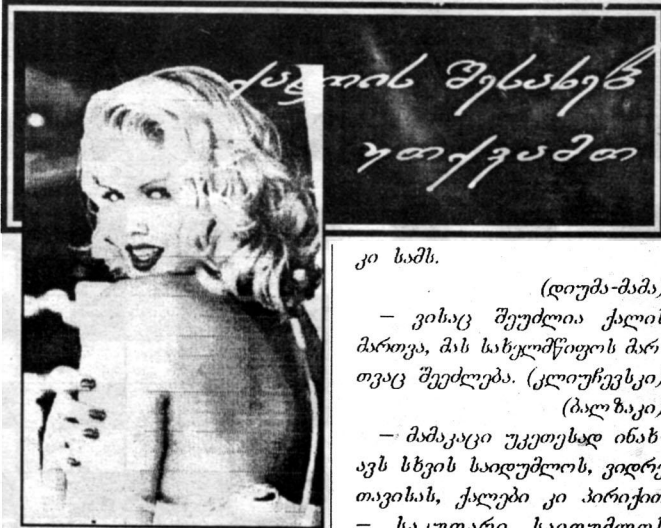 ქალის შესახებ
უთქვამთ
კი სამს.
(დიუმა-მამა)
– ვისაც შეუძლია ქალის
მართვა, მას სახელმწიფოს მარ-
თვაც შეეძლება. (კლიუჩევსკი)
(ბალზაკი)
– მამაკაცი უკეთესად ინახ-
ავს სხვის საიდუმლოს, ვიდრე
თავისას, ქალები კი პირიქით
– საკუთარი საიდუმლოს